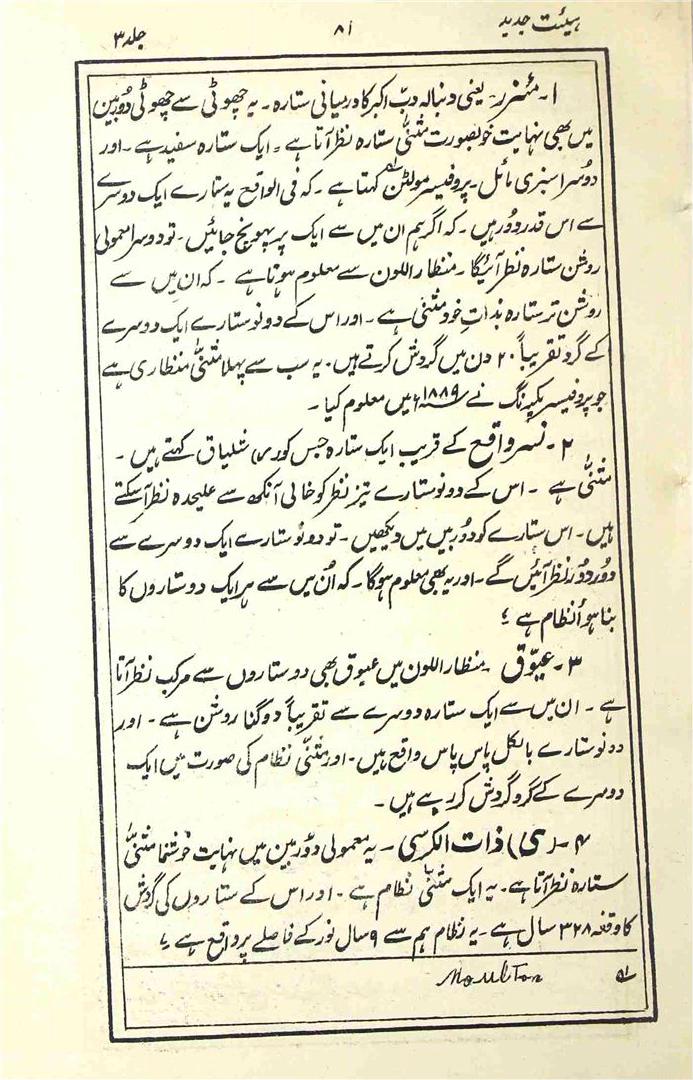 ہیئت جدید
۸۱
جلد ۳
۱- مئزر- یعنی دنبالہ دبّ اکبر کا درمیانی ستارہ - یہ چھوٹی سے چھوٹی دُوربین
میں بھی نہایت خوبصورت مثنّٰی ستارہ نظر آتا ہے - ایک ستارہ سفید ہے - اور
دوسرا سبزی مائل - پروفیسر مولٹن ؂۱ کہتا ہے - کہ فی الواقع یہ ستارے ایک دوسرے
سے اس قدر دور ہیں - کہ اگر ہم ان میں سے ایک پر پہونچ جائیں - تو دوسرا معمولی
روشن ستارہ نظر آئیگا - منظار اللون سے معلوم ہوتا ہے - کہ ان میں سے
روشن تر ستارہ بذاتِ خود مثنّٰی ہے - اور اس کے دونو ستارے ایک دوسرے
کے گرد تقریباً ۲۰ دن میں گردش کرتے ہیں - یہ سب سے پہلا مثنّٰی منطاری ہے
جو پروفیسر پکرنگ نے ۱۸۸۹ء میں معلوم کیا -
۲- نسر واقع کے قریب ایک ستارہ جس کو (ر) شلیاق کہتے ہیں -
مثنّٰی ہے - اس کے دونو ستارے تیز نظر کو خالی آنکھ سے علیحدہ نظر آسکتے
ہیں - اس ستارے کو دُوربیں میں دیکھیں - تو دونو ستارے ایک دوسرے سے
دُور دُور نظر آئیں گے - اور یہ بھی معلوم ہوگا - کہ اُن میں سے ہر ایک دو ستاروں کا
بنا ہوأ نظام ہے ؛
۳- عیّوق - منظار اللون میں عیوق بھی دو ستاروں سے مرکب نظر آتا
ہے - ان میں سے ایک ستارہ دوسرے سے تقریباً دوگنا روشن ہے - اور
دونو ستارے بالکل پاس پاس واقع ہیں - اور مثنّٰی نظام کی صورت میں ایک
دوسرے کے گرد گردش کر رہے ہیں -
۴- (ی) ذات الکرسی - یہ معمولی دُوربین میں نہایت خوشنما مثنّٰی
ستارہ نظر آتا ہے - یہ ایک مثنّٰی نظام ہے - اور اس کے ستاروں کی گردش
کا وقفہ ۳۲۸ سال ہے - یہ نظام ہم سے ۹ سال نور کے فاصلے پر واقع ہے ؛
؂۱ Moulton